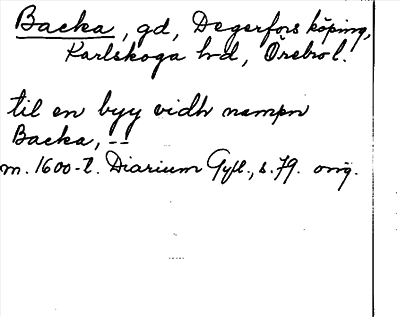 Backa, gd, Degerfors köping,
Karlskoga hd, Örebro l.
til en byy vidh nampn
Backa, --
m. 1600-t. Diarium Gyll., s. 79. orig.